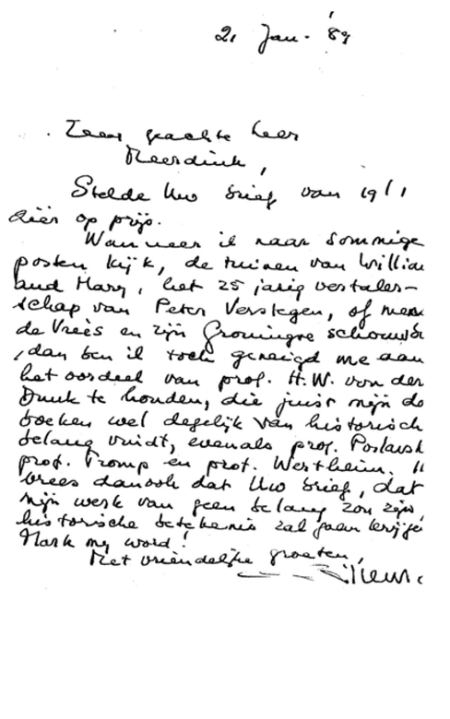 21 Jan. '89
Zeer geachte heer
Meerdink,
Stelde Uw brief van 19/1
zéér op prijs.
Wanneer ik naar sommige
posten kijk, de tuinen van William
and Mary, het 25 jarig vertaler-
schap van Peter Verstegen, of
de Vries en zijn Groningse
, dan ben ik toch geneigd me aan
het oordeel van prof. H.W. von der
Dunk te houden, die juist mijn
boeken wel degelijk van historisch
belang vindt, evenals prof.
prof. Tromp en prof. Wertheim.
vrees dan ook dat Uw brief, dat
mijn werk van geen belang zou zijn,
historische betekenis zal gaan krijgen
Mark my word!
Met vriendelijke groeten,